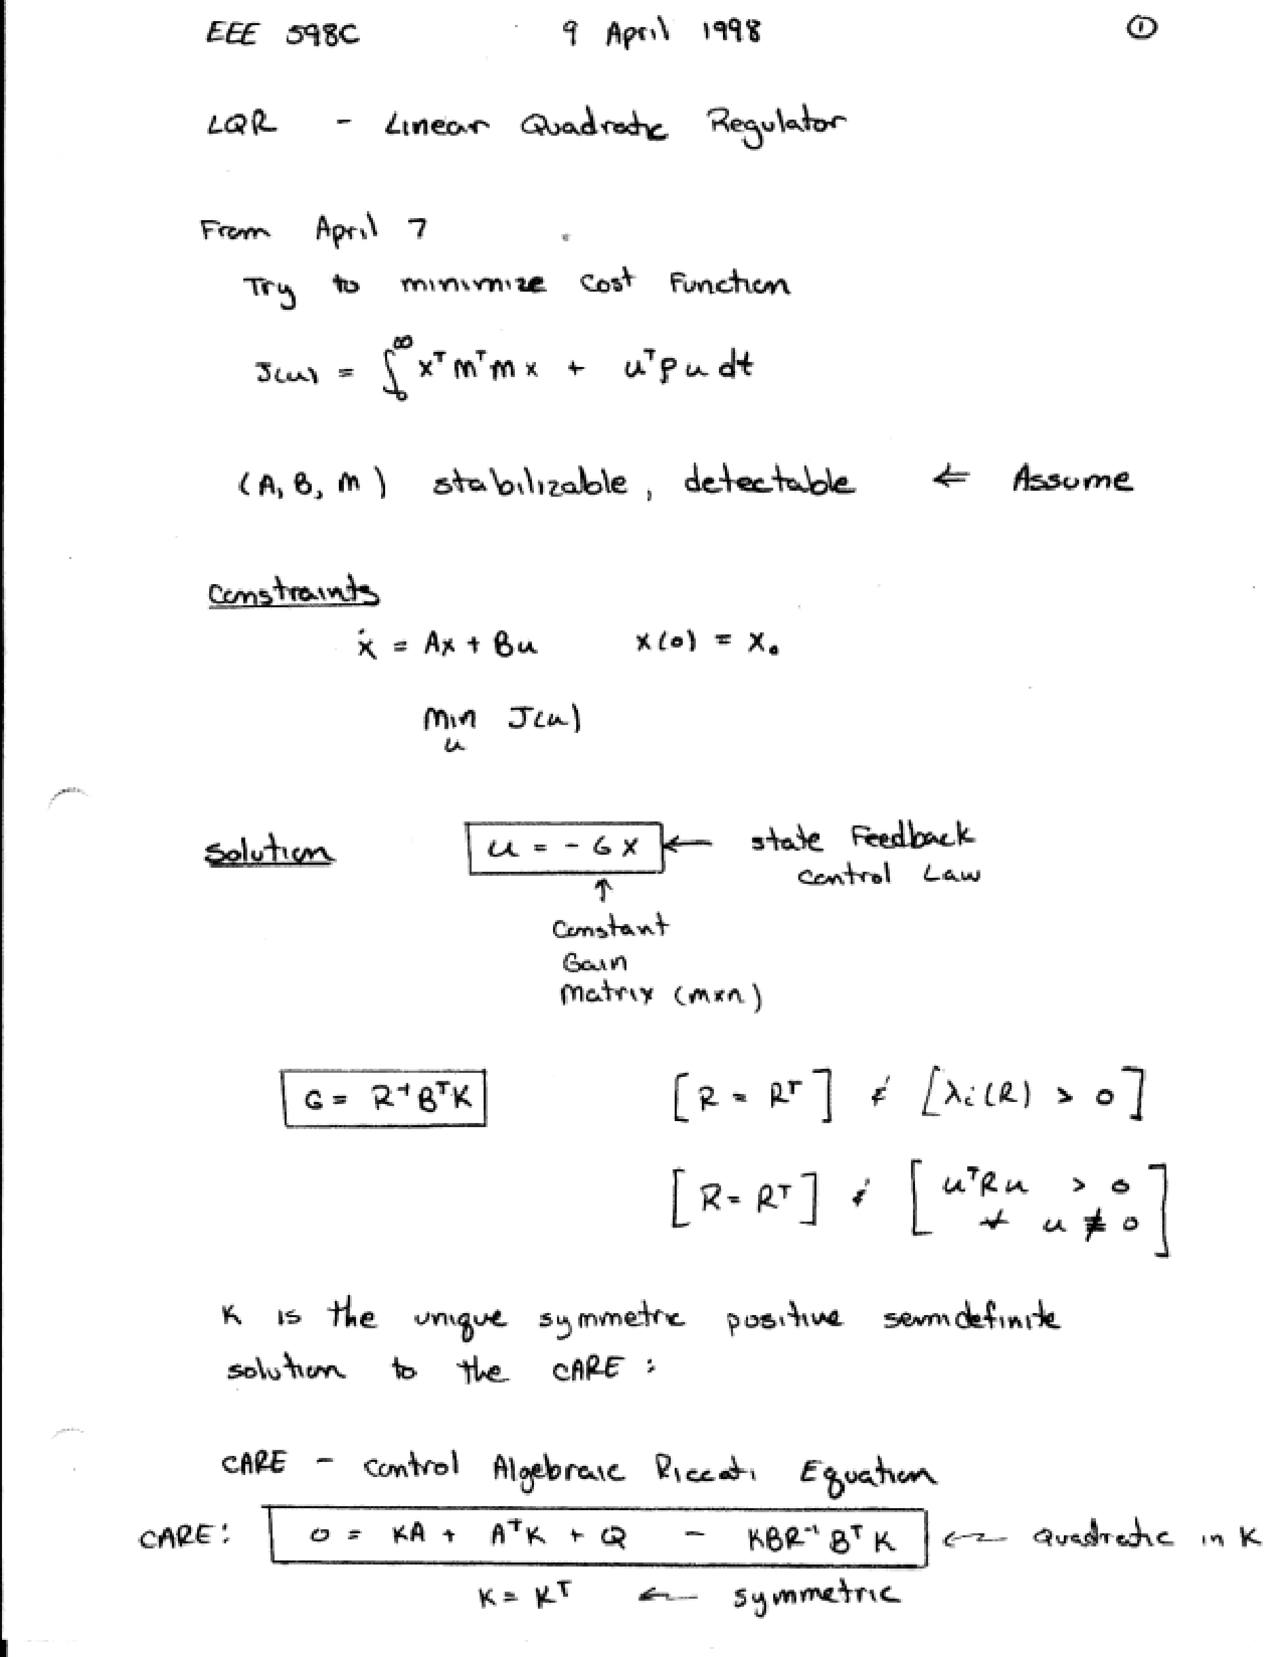 EEE 598C 9 April 1998 ①
LQR - Linear Quadratic Regulator
From April 7
Try to minimize cost function
J(u) = ∫₀^∞ xᵀMᵀMx + uᵀρu dt
(A, B, M) stabilizable, detectable ← Assume
Constraints
ẋ = Ax + Bu x(0) = x₀
min J(u)
u
Solution u = -Gx ← state Feedback
Control Law
↑
Constant
Gain
Matrix (m×n)
G = R⁻¹BᵀK [R = Rᵀ] & [λᵢ(R) > 0]
[R = Rᵀ] & [uᵀRu > 0
∀ u ≠ 0]
K is the unique symmetric positive semidefinite
solution to the CARE :
CARE - Control Algebraic Riccati Equation
CARE: 0 = KA + AᵀK + Q - KBR⁻¹BᵀK ← Quadratic in K
K = Kᵀ ← symmetric